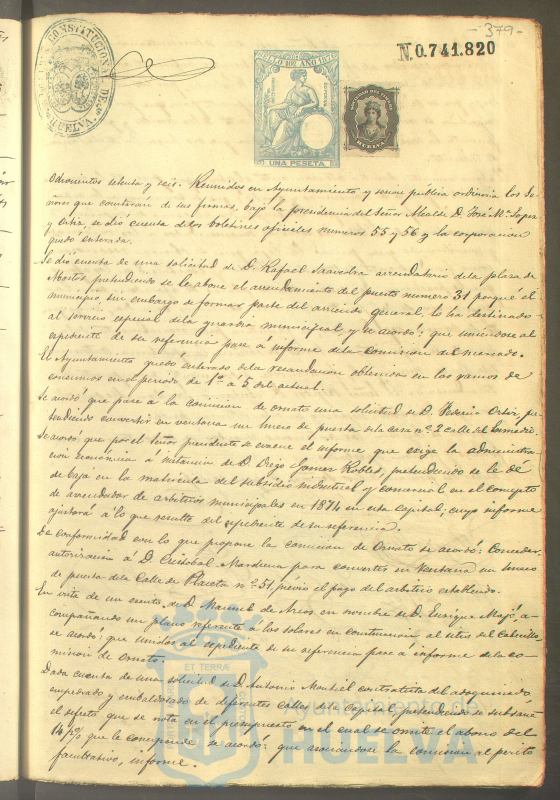 -379-
N.0.741.820
CONSTITUCIONAL DE HUELVA
SELLO 10º AÑO 1876
UNA PESETA
HUELVA
Ochocientos setenta y seis. Reunidos en Ayuntamiento y sesion publica ordinaria los Se-
ñores que constarán de sus firmas, bajo la presidencia del Señor Alcalde D. José Mª Lopez
y Ortiz, se dió cuenta de los boletines oficiales numeros 55 y 56 y la corporacion
quedó enterada.
Se dió cuenta de una solicitud de D. Rafael Saavedra arrendatario dela plaza de
Mostos, pretendiendo se le abone el arrendamiento del puesto numero 31 porque el
municipio, sin embargo de formar parte del arriendo general, lo ha destinado
al servicio especial dela guardia municipal y se acordó: que uniendose al
espediente de su referencia pase á informe dela comision del mercado.
El Ayuntamiento quedó enterado dela recaudacion obtenida en los ramos de
consumos en el periodo de 1º á 5 del actual.
Se acordó que pase á la comision de ornato una solicitud de D. Federico Ortiz, pre-
tendiendo convertir en ventana un hueco de puerta dela casa nº 2 calle del
Se acordó que por el Señor presidente se evacue el informe que exige la administra-
cion económica á instancia de D. Diego Gomez Robles, pretendiendo se le dé
de baja en la matricula del subsidio industrial y comercial en el concepto
de arrendador de arbitrios municipales en 1874 en esta Capital; cuyo informe
ajustará á lo que resulte del espediente de su referencia.
De conformidad con lo que propone la comision de Ornato se acordó: Conceder
autorizacion á D. Cristobal Mardena para convertir en Ventana un hueco
de puerta dela Calle de Placeta nº 51, previo el pago del arbitrio establecido.
En vista de un escrito de D. Manuel de Arcos en nombre de D. Enrique Mojó, a-
compañando un plano referente á los solares en continuacion al sitio del Cabrillo,
se acordó: que unidos al espediente de su referencia pase á informe dela co-
mision de Ornato.
Dada cuenta de una solicitud de D. Antonio Montiel contratista del adoquinado
empedrado y embaldosado de diferentes calles de esta Capital, pretendiendo se subsane
el defecto que se nota en el presupuesto en el cual se omite el abono del
14 p% que le corresponde se acordó: que asociandose la comision al perito
facultativo, informe.
Ayuntamiento de
HUELVA